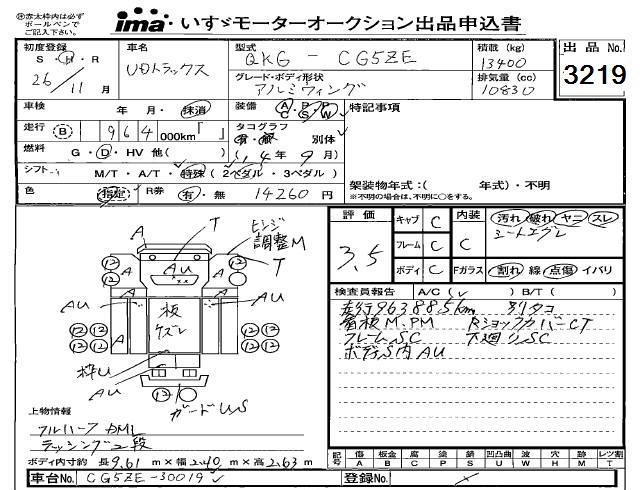 ※赤太枠内は必ず
ボールペンで
ご記入下さい。
ima・いすゞモーターオークション出品申込書
初度登録
S・H・R
26年11月
車名
UDトラックス
型式
QKG - CG5ZE
グレード・ボディ形状
アルミウィング
積載 (kg)
13400
排気量 (cc)
10830
出品 No.
3219
車検 年・月・抹消
装備 A/C P/S P/W
特記事項
走行 B 964 000km「 」
タコグラフ 有・無 別体
燃料 G・D・HV 他( )
(14年9月)
シフト M/T・A/T・特殊 (2ペダル・3ペダル)
色 指定
R券 有・無 14260円
架装物年式:( 年式)・不明
※不明の場合は、不明に○をする。
評価 3.5
キャブ C
フレーム C
ボディ C
内装 C
汚れ 破れ ヤニ スレ
シートエグレ
Fガラス 割れ 線 点傷 イバリ
検査員報告 A/C( ✓ ) B/T( )
走行963885km 別タコ
看板M、PM RショックカバーCT
フレームSC 下廻りSC
ボデS内AU
A
T
ヒンジ
調整M
T
12
12
A
AU
A
12
12
AU
A
A
板
ケズレ
A
A
AU
12
12
12
12
12
12
12
12
枠U
AU
12
ガードUS
上物情報
フルハーフ DML
ラッシング二段
ボディ内寸約 長9.61m×幅2.40m×高2.63m
記号
傷 板金 腐 塗 錆 凹凸曲 波 穴 跡 レツ割
A B C P S U W H M T
車台No. CG5ZE-30019
登録No.